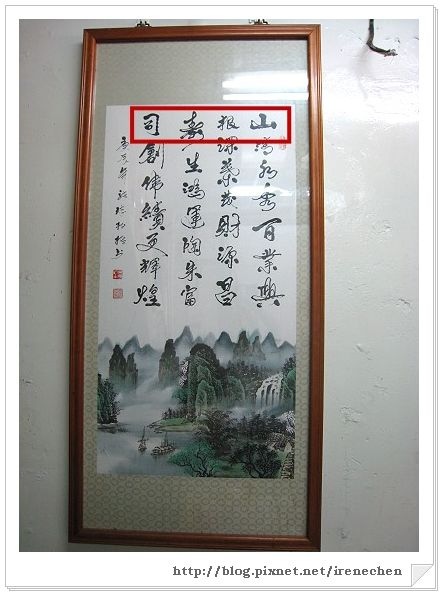 山清水秀百業興
根深葉茂財源昌
壽生鴻運陶朱富
司創偉績更輝煌
庚辰年
http://blog.pixnet.net/irenechen